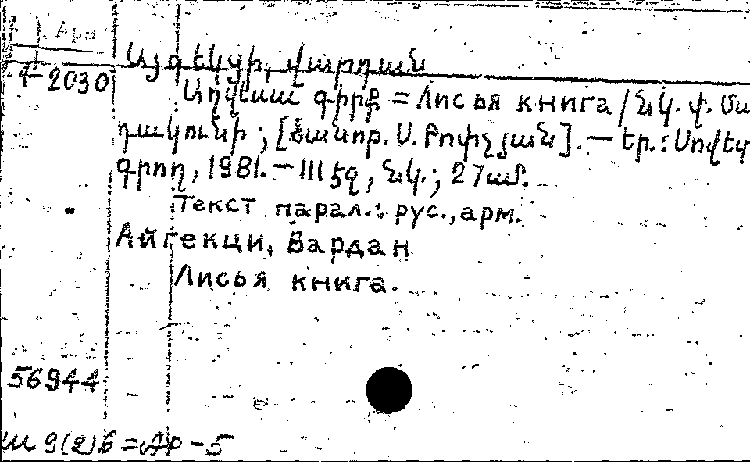 Արմ
Ч-2030
Այգեկցի, Վարդան
Աղվեսա գիրք = Лисья книга / Նկ. Փ. Մա
դակունի; [Ծանոթ. Ս. Բոփչյան]. – Եր.: Սովետ
գրող, 1981. – 111 էջ, նկ.; 27սմ.
Текст парал.: рус., арм.
Айгекци, Вардан
Лисья книга.
56944
9(2)6 = Ар - 5